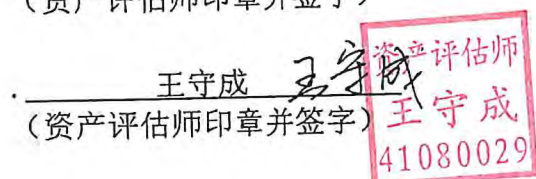 (资产评估师印章并签字)
王守成 王守成
(资产评估师印章并签字)
资产评估师
王守成
41080029